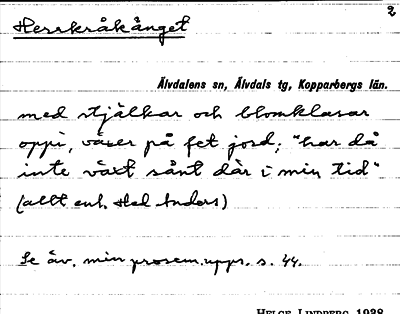 2
Herrkråkånget
Älvdalens sn, Älvdals tg, Kopparbergs län.
med stjälkar och blomklasar
oppi, växer på fet jord; "har då
inte växt sånt där i min tid"
(allt enl. Hed Anders)
Se äv. min prosem.upps. s. 44.
HELGE LINDBERG 1938